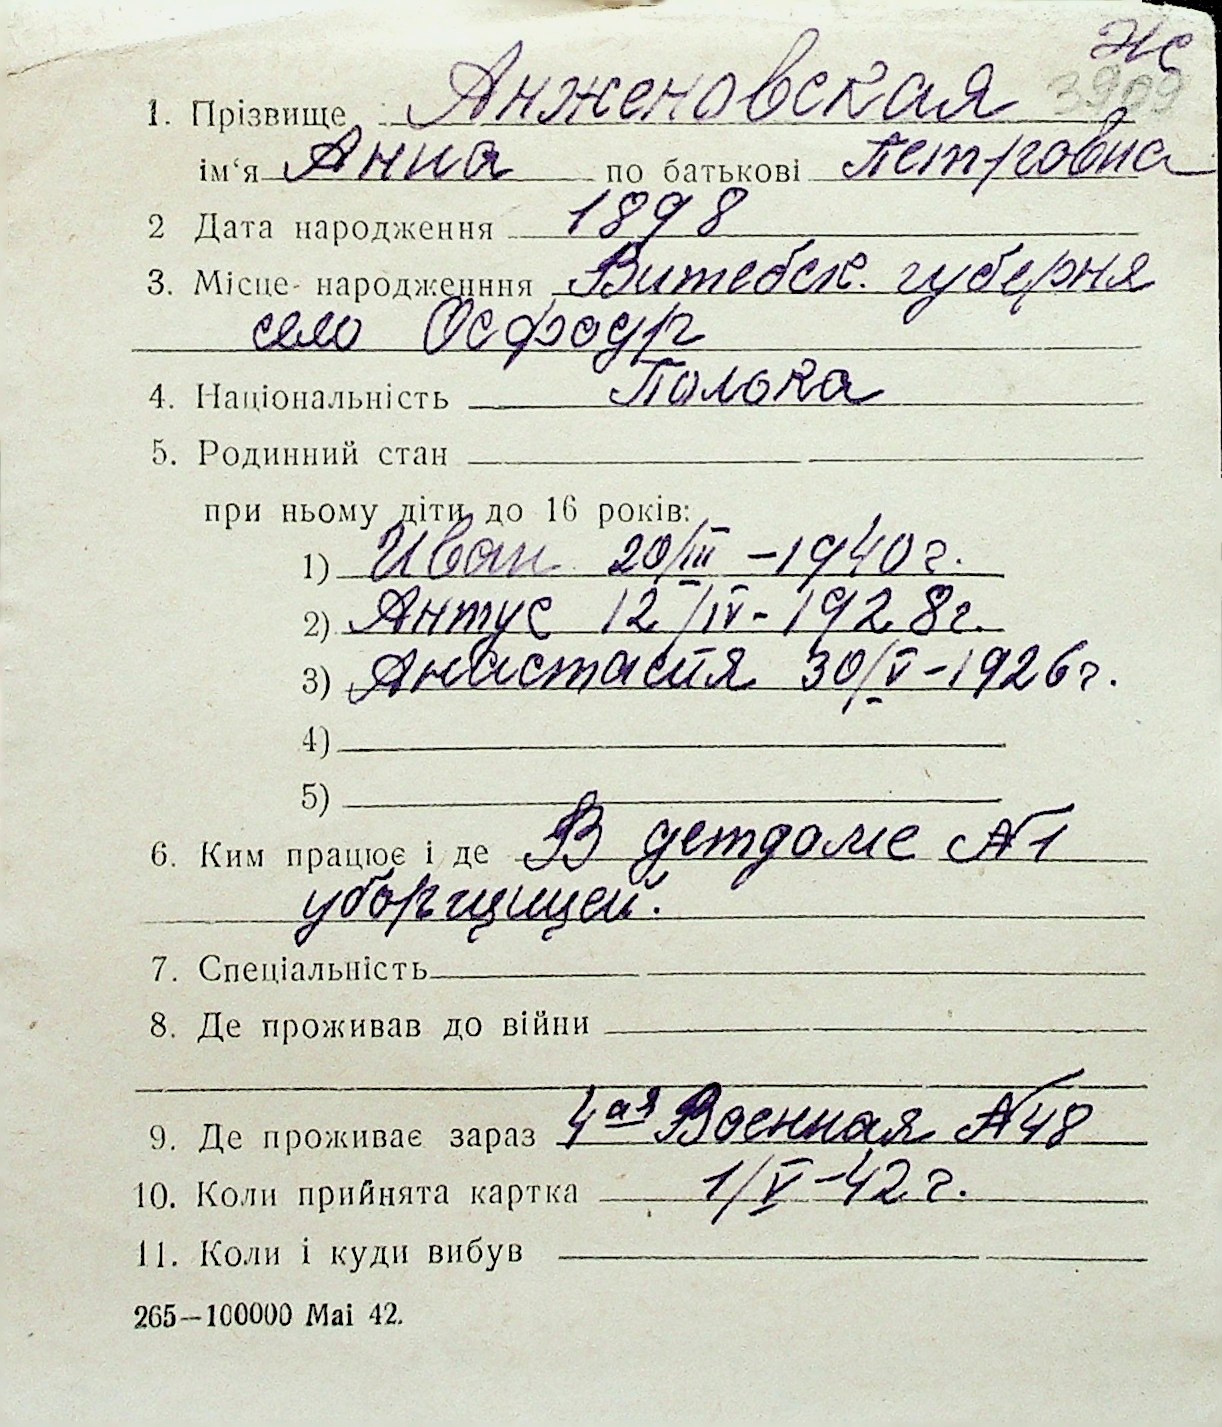 Же
3909
1. Прізвище Анженовская
ім‘я Анна по батькові Петровна
2 Дата народження 1898
3. Місце- народженння Витебск. губерня
село Осфодр
4. Національність Полока
5. Родинний стан
при ньому діти до 16 років:
1) Иван 20/III – 1940 г.
2) Антус 12/IV - 1928 г.
3) Анастасия 30/V – 1926 г.
4)
5)
6. Ким працює і де В детдоме №1
уборщицей.
7. Спеціальність
8. Де проживав до війни
9. Де проживає зараз 4ая Военная №48
10. Коли прийнята картка 1/V – 42 г.
11. Коли і куди вибув
265—100000 Mai 42.